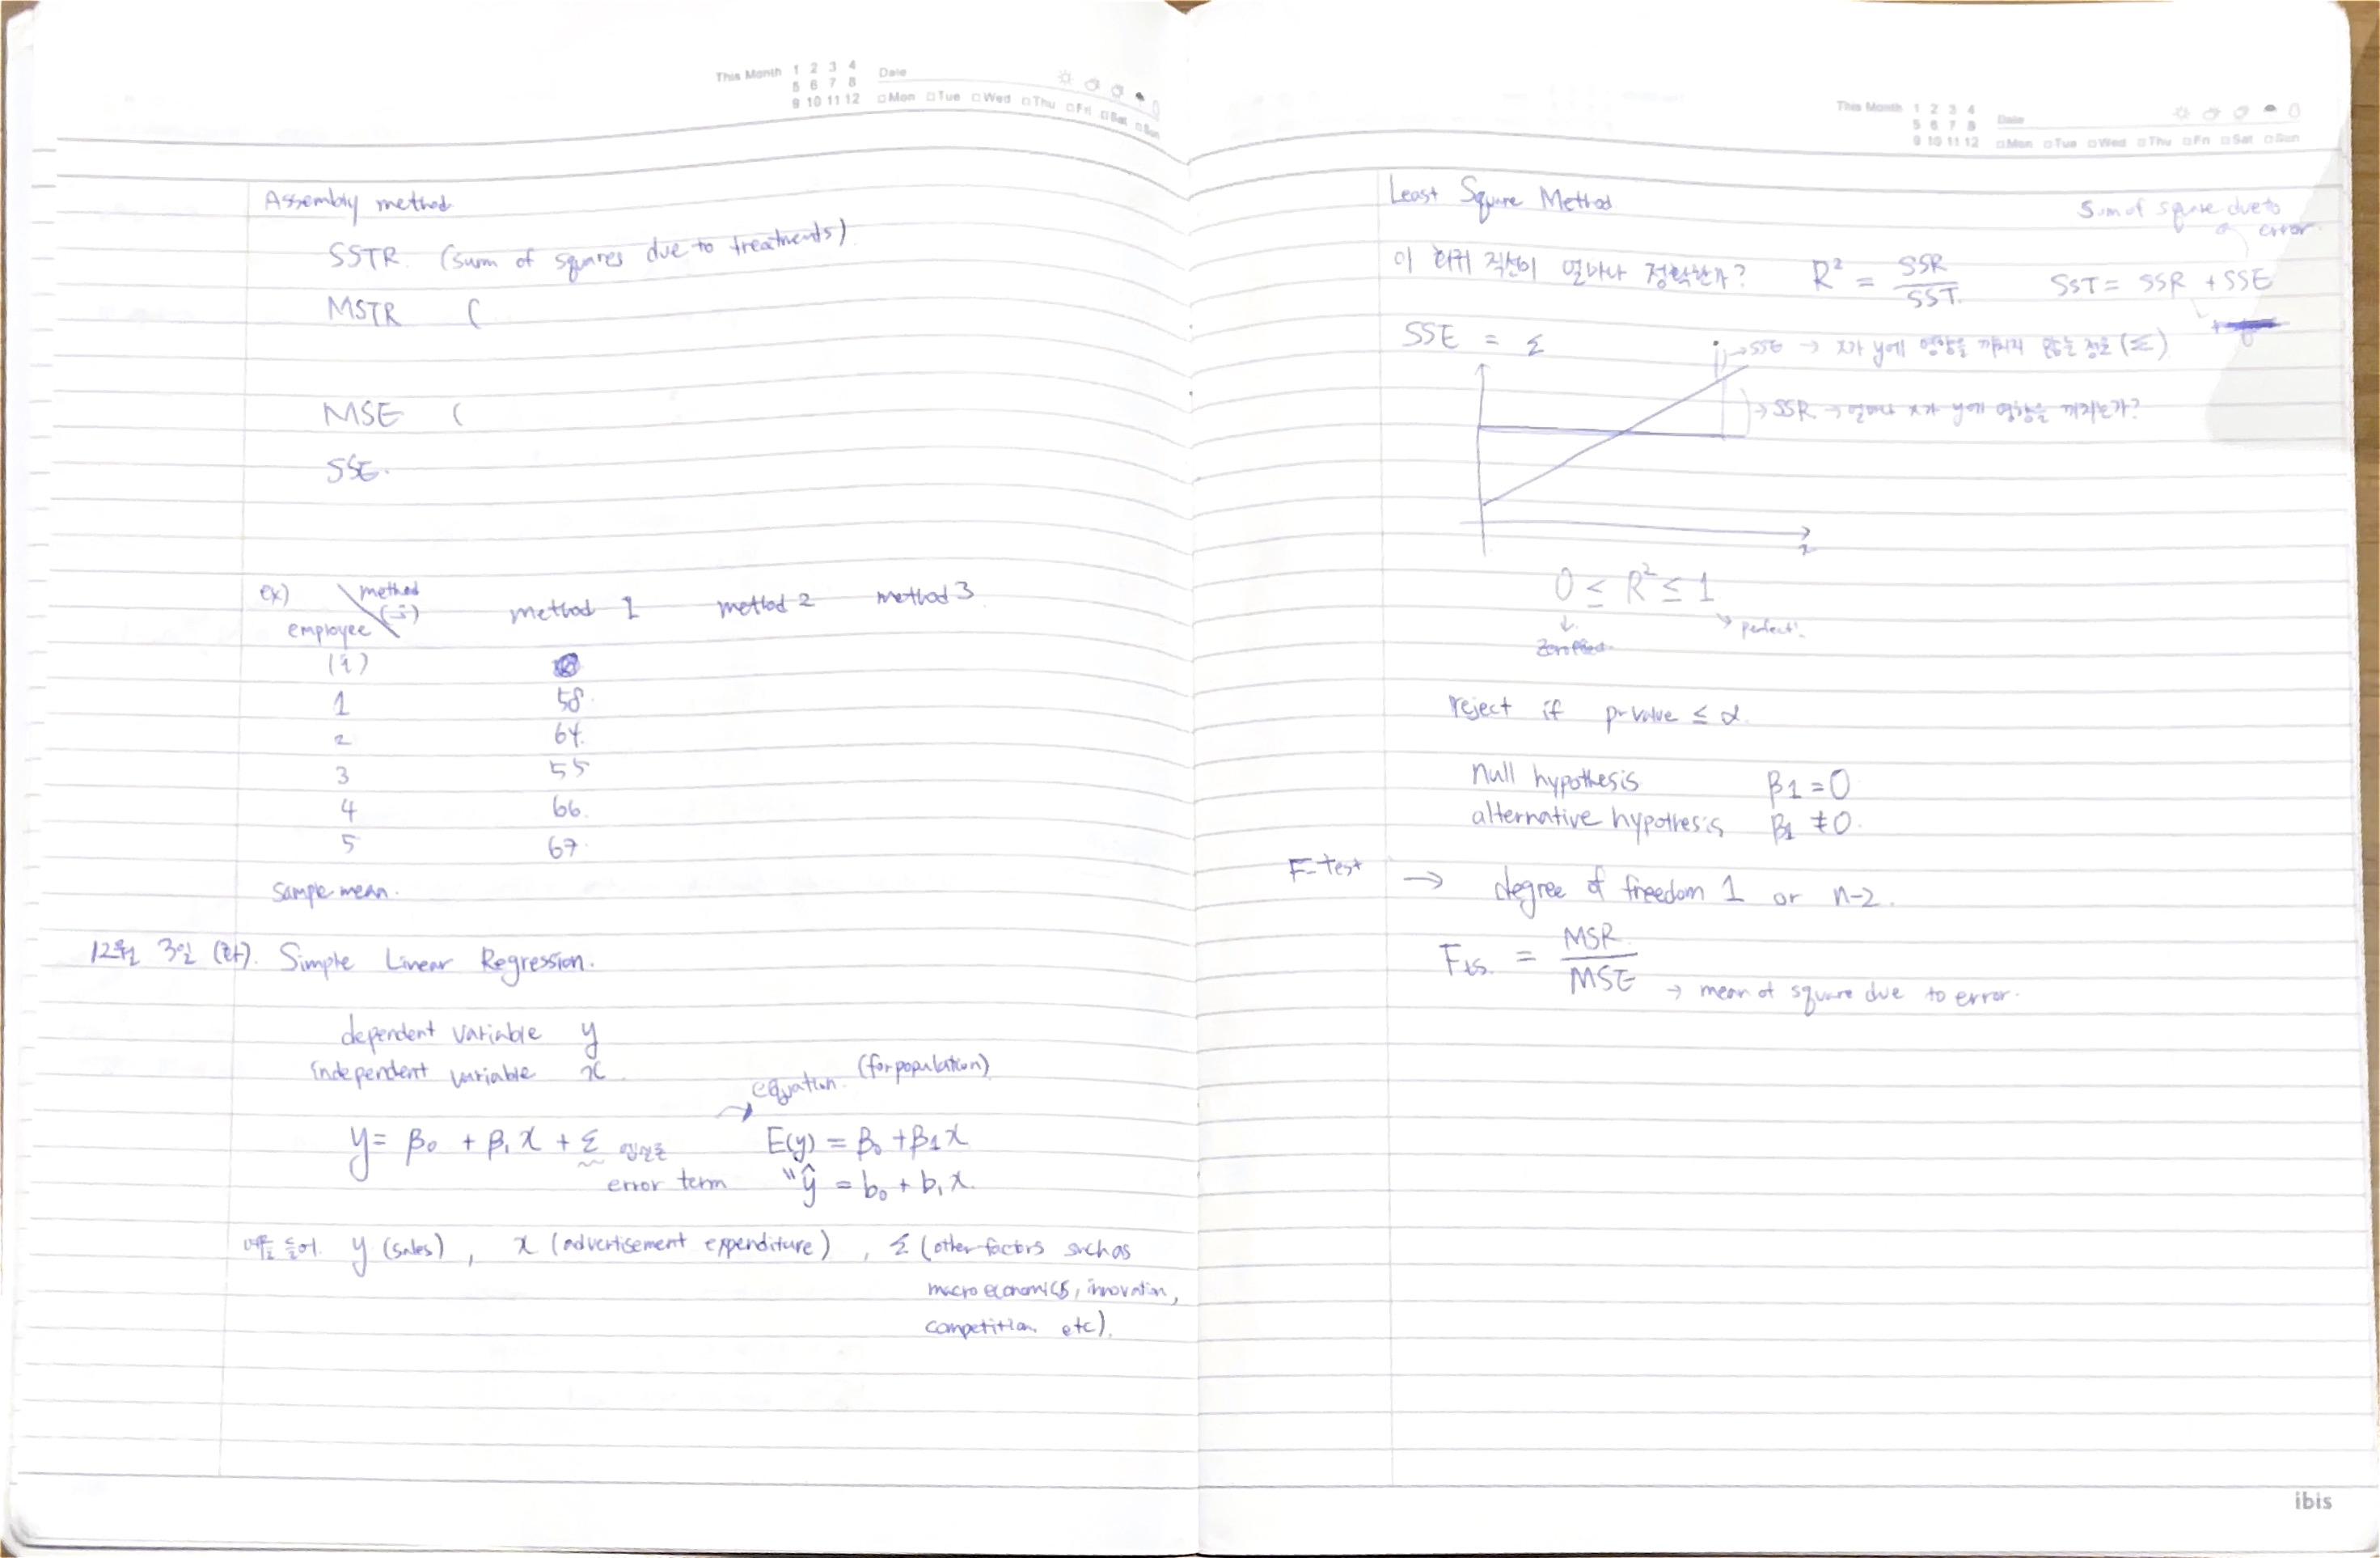 This Month 1 2 3 4
5 6 7 8
9 10 11 12
Date
Mon Tue Wed Thu Fri Sat Sun
Assembly method
SSTR. (sum of squares due to treatments)
MSTR (
MSE (
SSE.
ex) method (j)
employee (i)
method 1 method 2 method 3
1 58.
2 64.
3 55
4 66.
5 67.
Sample mean.
12월 3일 (화). Simple Linear Regression.
dependent variable y
independent variable x
equation. (for population)
y = β₀ + β₁x + Σ 엡실론 E(y) = β₀ + β1x
error term "ŷ = b₀ + b₁x.
예를 들어. y (sales), x (advertisement expenditure), Σ (other factors such as
macro economics, innovation,
competition etc).
This Month 1 2 3 4
5 6 7 8
9 10 11 12
Date
Mon Tue Wed Thu Fri Sat Sun
Least Square Method
Sum of square due to
error.
이 회귀 직선이 얼마나 정확한가? R² = SSR / SST. SST = SSR + SSE
SSE = Σ
→ SSE → x가 y에 영향을 끼치지 않는 정도 (Σ)
→ SSR → 얼마나 x가 y에 영향을 끼치는가?
x
0 ≤ R² ≤ 1
perfect.
reject if p-value ≤ α.
null hypothesis β1 = 0
alternative hypothesis β1 ≠ 0.
F-test → degree of freedom 1 or n-2.
F = MSR / MSE → mean of square due to error.
ibis